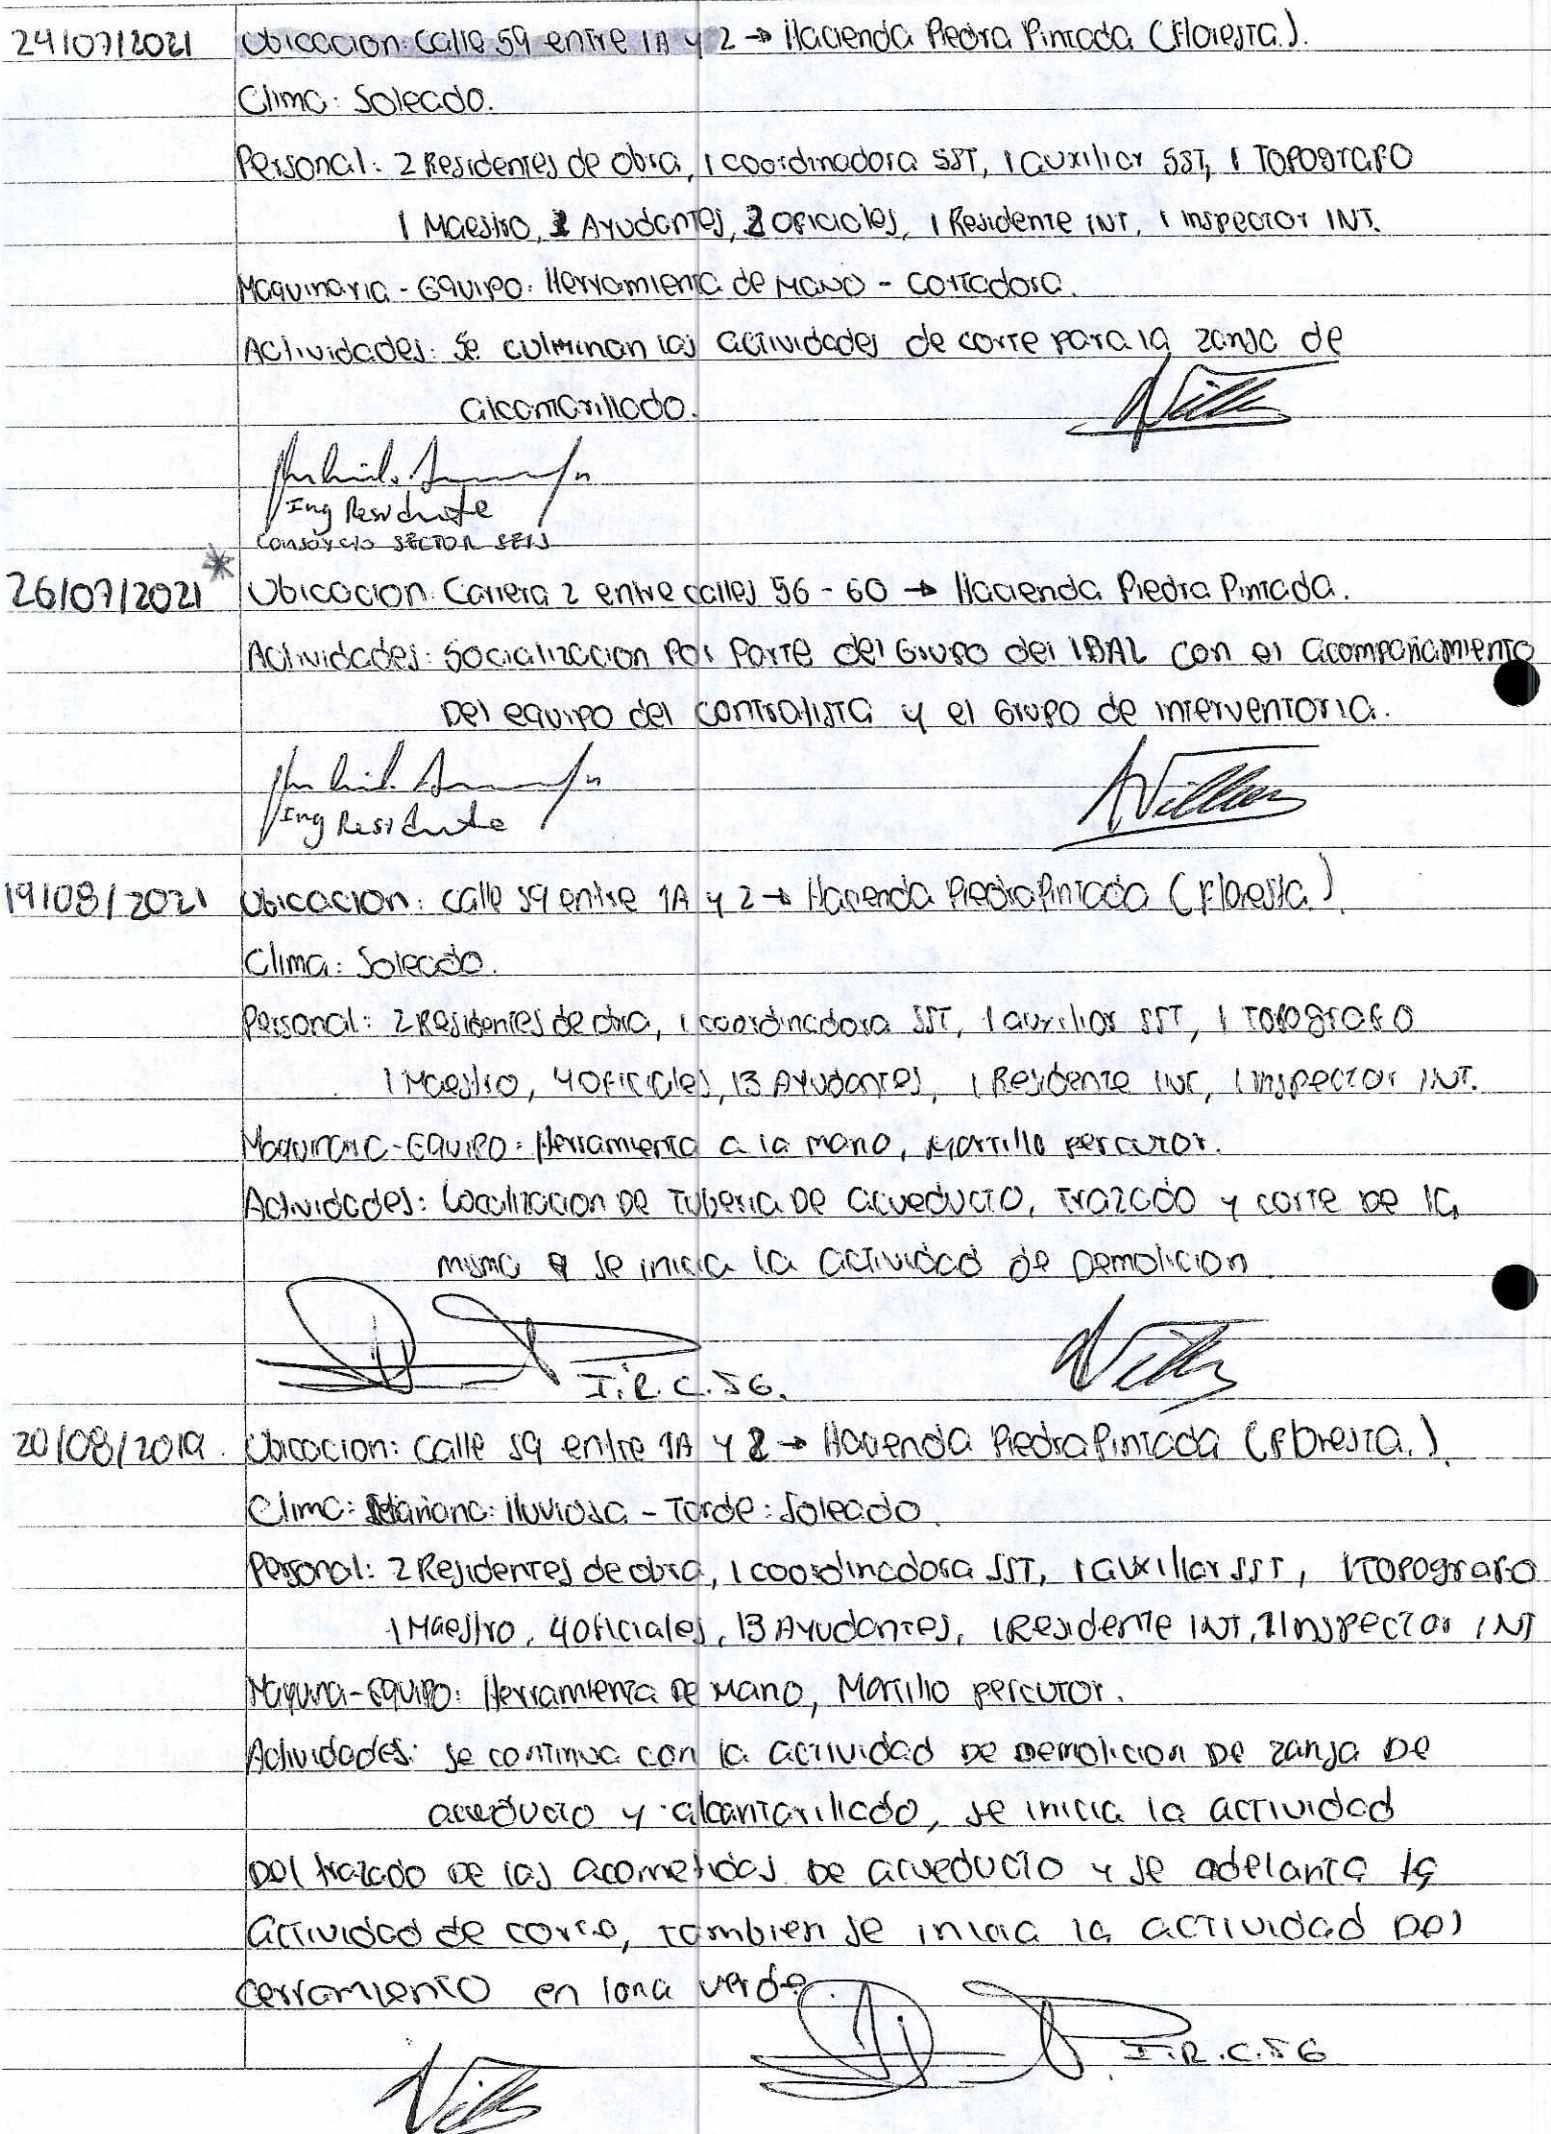 24/07/2021 Ubicacion: Calle 59 entre 1A y 2 → Hacienda Piedra Pintada (Floresta).
Clima: Soleado.
Personal: 2 Residentes de obra, 1 coordinadora SST, 1 auxiliar SST, 1 Topografo
1 Maestro, Ayudantes, 2 Oficiales, 1 Residente INT, 1 inspector INT.
Maquinaria - Equipo: Herramienta de Mano - Cortadora.
Actividades: Se culminan las actividades de corte para la zanja de
alcantarillado.
Ing Residente
Consorcio SECTOR SEIS
26/07/2021 * Ubicacion: Carrera 2 entre calles 56 - 60 → Hacienda Piedra Pintada.
Actividades: Socializacion Por Parte del Grupo del IBAL con el acompañamiento
Del equipo del contratista y el Grupo de interventoria.
Ing Residente
19/08/2021 Ubicacion: Calle 59 entre 1A y 2 → Hacienda Piedra Pintada (Floresta.)
Clima: Soleado.
Personal: 2 Residentes de obra, 1 coordinadora SST, 1 auxiliar SST, 1 Topografo
1 Maestro, 4 Oficiales, 13 Ayudantes, 1 Residente INT, 1 inspector INT.
Maquinaria-Equipo: Herramienta a la mano, Martillo percutor.
Actividades: Localizacion De Tuberia De acueducto, Trazado y corte De la
misma se inicia la actividad de Demolicion.
I.R.C.S6.
20/08/2019. Ubicacion: Calle 59 entre 1A y 2 → Hacienda Piedra Pintada (Floresta.)
Clima: Mañana: lluviosa - Tarde: Soleado.
Personal: 2 Residentes de obra, 1 coordinadora SST, 1 auxiliar SST, 1 Topografo
1 Maestro, 4 Oficiales, 13 Ayudantes, 1 Residente INT, 1 Inspector INT
Maquina-Equipo: Herramienta De Mano, Martillo percutor.
Actividades: Se continua con la actividad De Demolicion De zanja De
acueducto y alcantarillado, se inicia la actividad
Del trazado De las acometidas De acueducto y se adelanta la
actividad de corte, tambien se inicia la actividad Del
cerramiento en lona verde.
I.R.C.S6